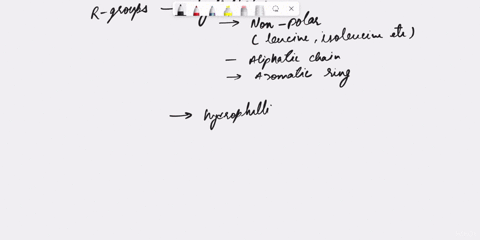 R-groups —
→ Non-polar
(leucine, isoleucine etc)
— Aliphatic chain
→ Aromatic ring
→ hydrophilli